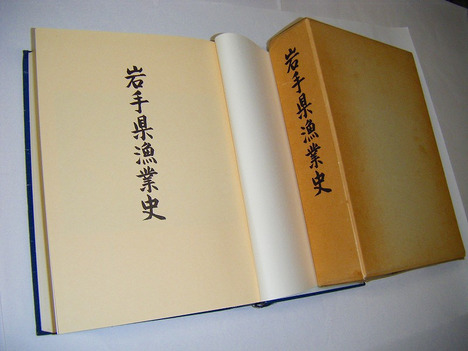 岩手県漁業史
岩手県漁業史